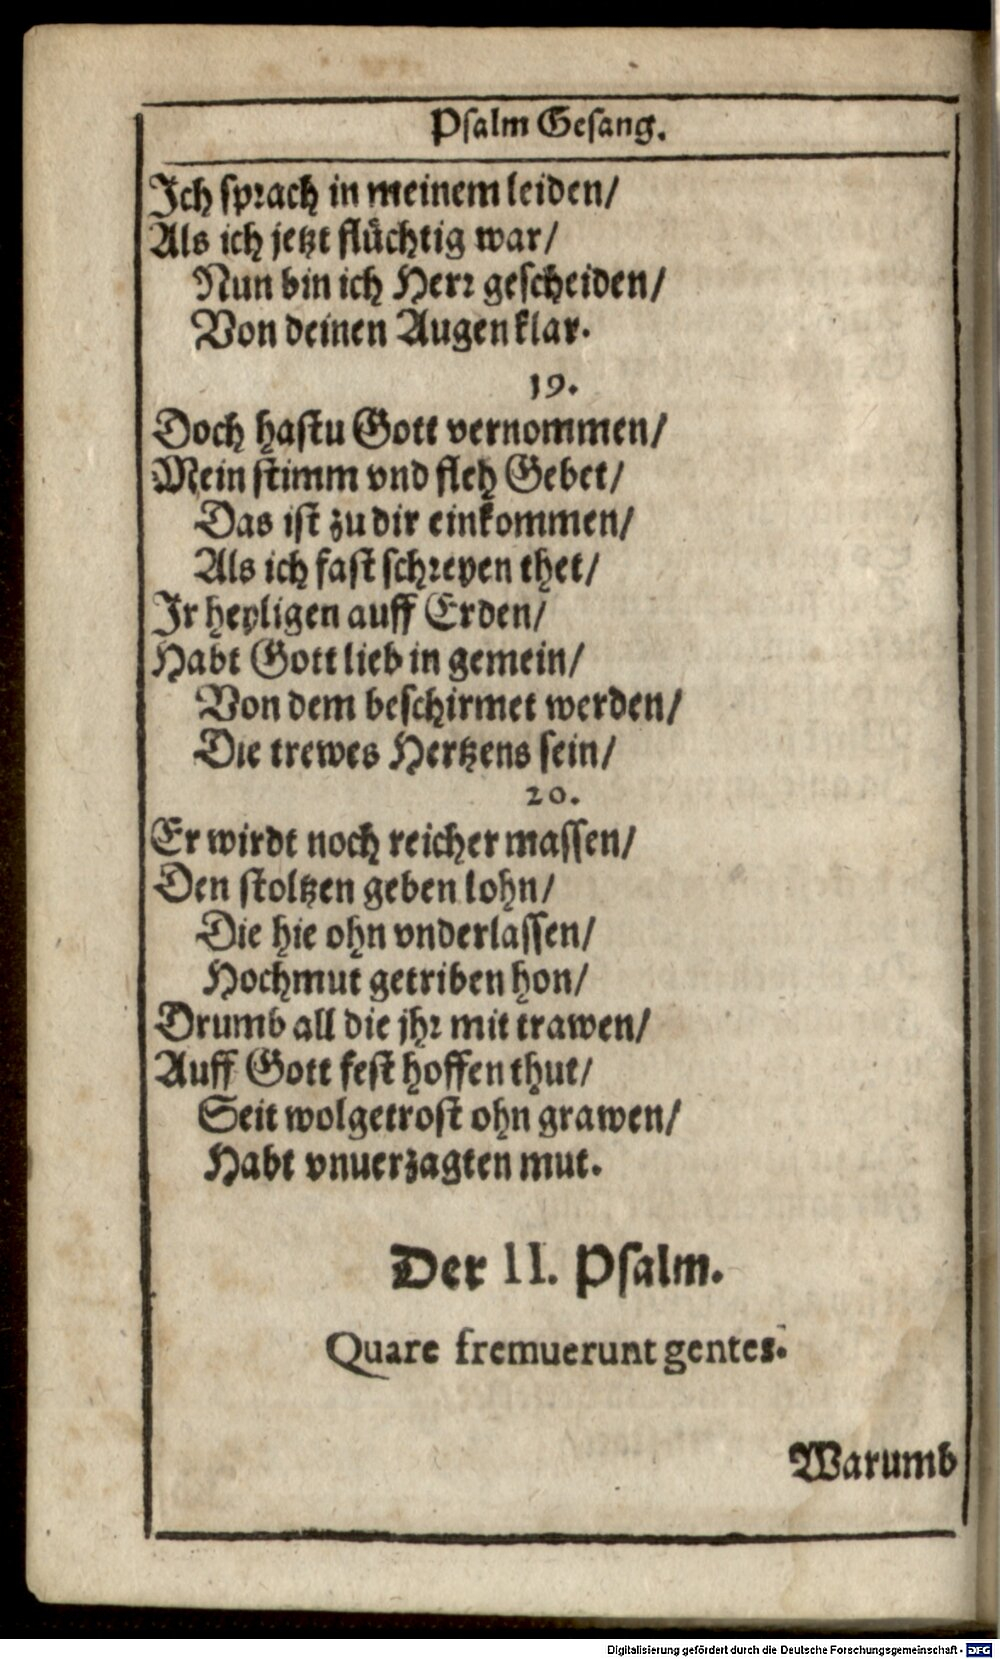 Psalm Gesang.
Ich sprach in meinem leiden/
Als ich jetzt flüchtig war/
Nun bin ich Herr gescheiden/
Von deinen Augen klar.
19.
Doch hastu Gott vernommen/
Mein stimm vnd fleh Gebet/
Das ist zu dir einkommen/
Als ich fast schreyen thet/
Ir heyligen auff Erden/
Habt Gott lieb in gemein/
Von dem beschirmet werden/
Die trewes Hertzens sein/
20.
Er wirdt noch reicher massen/
Den stoltzen geben lohn/
Die hie ohn vnderlassen/
Hochmut getriben hon/
Drumb all die jhr mit trawen/
Auff Gott fest hoffen thut/
Seit wolgetrost ohn grawen/
Habt vnuerzagten mut.
Der II. Psalm.
Quare fremuerunt gentes.
Warumb
Digitalisierung gefördert durch die Deutsche Forschungsgemeinschaft - DFG